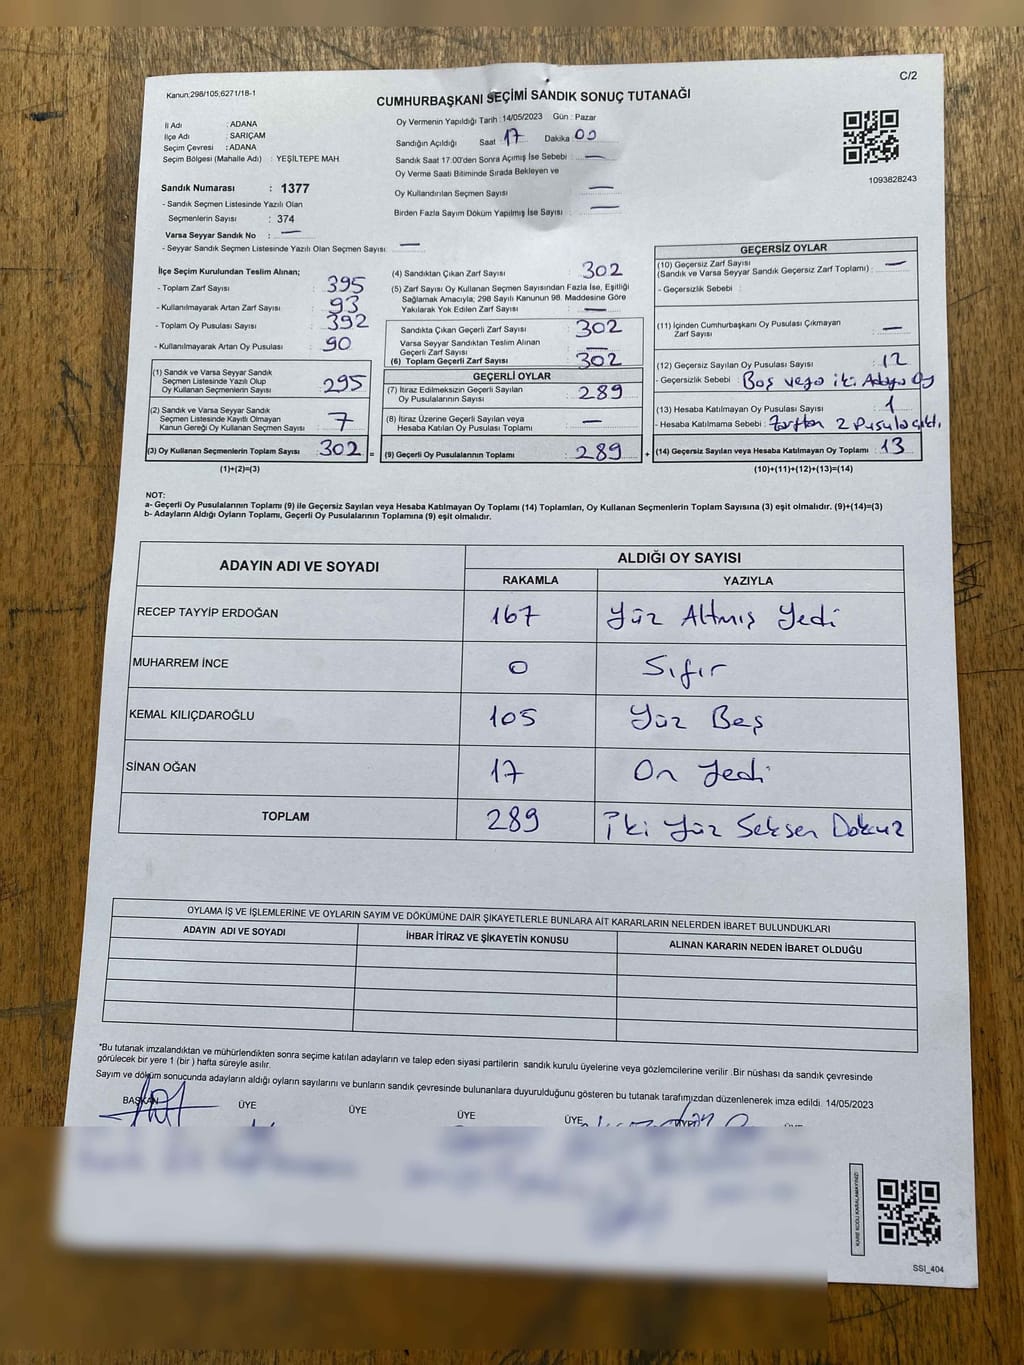 Kanun;298/105,6271/18-1
C/2
CUMHURBAŞKANI SEÇİMİ SANDIK SONUÇ TUTANAĞI
İl Adı : ADANA
İlçe Adı : SARIÇAM
Seçim Çevresi : ADANA
Seçim Bölgesi (Mahalle Adı) : YEŞİLTEPE MAH
Oy Vermenin Yapıldığı Tarih : 14/05/2023 Gün : Pazar
Sandığın Açıldığı Saat 17 Dakika 00
Sandık Saat 17.00'den Sonra Açımış İse Sebebi : —
Oy Verme Saati Bitiminde Sırada Bekleyen ve
Oy Kullandırılan Seçmen Sayısı —
Birden Fazla Sayım Döküm Yapılmış İse Sayısı : —
1093828243
Sandık Numarası : 1377
- Sandık Seçmen Listesinde Yazılı Olan
Seçmenlerin Sayısı : 374
Varsa Seyyar Sandık No : —
- Seyyar Sandık Seçmen Listesinde Yazılı Olan Seçmen Sayısı: —
İlçe Seçim Kurulundan Teslim Alınan;
- Toplam Zarf Sayısı : 395
- Kullanılmayarak Artan Zarf Sayısı : 93
- Toplam Oy Pusulası Sayısı : 392
- Kullanılmayarak Artan Oy Pusulası : 90
(1) Sandık ve Varsa Seyyar Sandık
Seçmen Listesinde Yazılı Olup
Oy Kullanan Seçmenlerin Sayısı : 295
(2) Sandık ve Varsa Seyyar Sandık
Seçmen Listesinde Kayıtlı Olmayan
Kanun Gereği Oy Kullanan Seçmen Sayısı : 7
(3) Oy Kullanan Seçmenlerin Toplam Sayısı : 302 =
(1)+(2)=(3)
(4) Sandıktan Çıkan Zarf Sayısı : 302
(5) Zarf Sayısı Oy Kullanan Seçmen Sayısından Fazla İse, Eşitliği
Sağlamak Amacıyla; 298 Sayılı Kanunun 98. Maddesine Göre
Yakılarak Yok Edilen Zarf Sayısı : —
Sandıkta Çıkan Geçerli Zarf Sayısı : 302
Varsa Seyyar Sandıktan Teslim Alınan
Geçerli Zarf Sayısı : —
(6) Toplam Geçerli Zarf Sayısı : 302
GEÇERLİ OYLAR
(7) İtiraz Edilmeksizin Geçerli Sayılan
Oy Pusulalarının Sayısı : 289
(8) İtiraz Üzerine Geçerli Sayılan veya
Hesaba Katılan Oy Pusulası Toplamı : —
(9) Geçerli Oy Pusulalarının Toplamı : 289 +
GEÇERSİZ OYLAR
(10) Geçersiz Zarf Sayısı
(Sandık ve Varsa Seyyar Sandık Geçersiz Zarf Toplamı) : —
- Geçersizlik Sebebi :
(11) İçinden Cumhurbaşkanı Oy Pusulası Çıkmayan
Zarf Sayısı : —
(12) Geçersiz Sayılan Oy Pusulası Sayısı : 12
- Geçersizlik Sebebi : Boş veya iki Adaya Oy
(13) Hesaba Katılmayan Oy Pusulası Sayısı : 1
- Hesaba Katılmama Sebebi : Zarftan 2 Pusula çıktı,
(14) Geçersiz Sayılan veya Hesaba Katılmayan Oy Toplamı : 13
(10)+(11)+(12)+(13)=(14)
NOT:
a- Geçerli Oy Pusulalarının Toplamı (9) ile Geçersiz Sayılan veya Hesaba Katılmayan Oy Toplamı (14) Toplamları, Oy Kullanan Seçmenlerin Toplam Sayısına (3) eşit olmalıdır. (9)+(14)=(3)
b- Adayların Aldığı Oyların Toplamı, Geçerli Oy Pusulalarının Toplamına (9) eşit olmalıdır.
ADAYIN ADI VE SOYADI ALDIĞI OY SAYISI
RAKAMLA YAZIYLA
RECEP TAYYİP ERDOĞAN 167 Yüz Altmış Yedi
MUHARREM İNCE 0 Sıfır
KEMAL KILIÇDAROĞLU 105 Yüz Beş
SİNAN OĞAN 17 On Yedi
TOPLAM 289 İki Yüz Seksen Dokuz
OYLAMA İŞ VE İŞLEMLERİNE VE OYLARIN SAYIM VE DÖKÜMÜNE DAİR ŞİKAYETLERLE BUNLARA AİT KARARLARIN NELERDEN İBARET BULUNDUKLARI
ADAYIN ADI VE SOYADI İHBAR İTİRAZ VE ŞİKAYETİN KONUSU ALINAN KARARIN NEDEN İBARET OLDUĞU
*Bu tutanak imzalandıktan ve mühürlendikten sonra seçime katılan adayların ve talep eden siyasi partilerin sandık kurulu üyelerine veya gözlemcilerine verilir .Bir nüshası da sandık çevresinde
görülecek bir yere 1 (bir ) hafta süreyle asılır.
Sayım ve döküm sonucunda adayların aldığı oyların sayılarını ve bunların sandık çevresinde bulunanlara duyurulduğunu gösteren bu tutanak tarafımızdan düzenlenerek imza edildi. 14/05/2023
BAŞKAN ÜYE ÜYE ÜYE ÜYE
KARE KODU KARALAMAYINIZ!
SSI_404